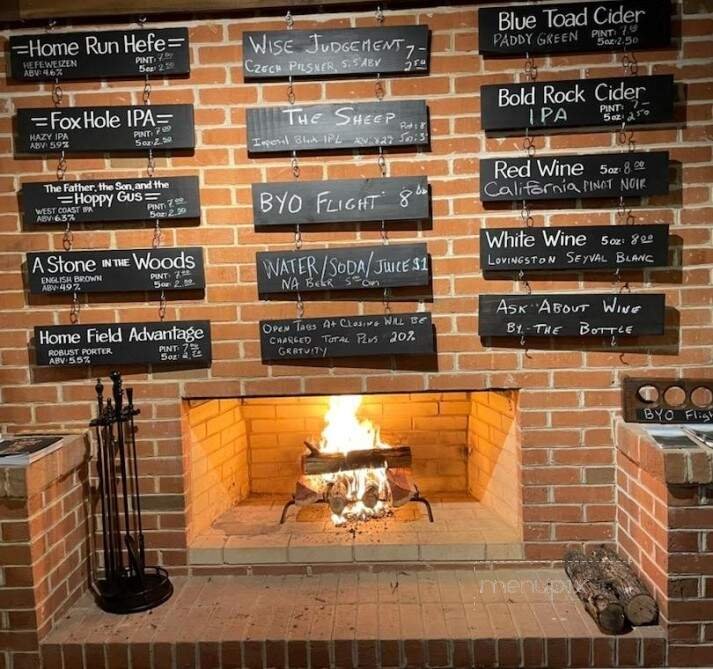 =Home Run Hefe=
HEFEWEIZEN
ABV: 4.6%
PINT: 7.00
5oz: 2.50
=Fox Hole IPA=
HAZY IPA
ABV: 5.9%
PINT: 7.00
5oz: 2.50
The Father, the Son, and the
=Hoppy Gus=
WEST COAST IPA
ABV: 6.3%
PINT: 7.00
5oz: 2.50
A Stone IN THE Woods
ENGLISH BROWN
ABV: 4.9%
PINT: 7.00
5oz: 2.50
Home Field Advantage
ROBUST PORTER
ABV: 5.5%
PINT:
5oz:
WISE JUDGEMENT 7-
CZECH PILSNER, 5.5 ABV
THE SHEEP
Imperial
BYO FLIGHT 8
WATER/SODA/JUICE $1
NA BEER
OPEN TABS At CLOSING WILL BE
CHARGED TOTAL PLUS 20%
GRATUITY
Blue Toad Cider
PADDY GREEN
PINT: 7.00
5oz: 2.50
Bold Rock Cider
IPA
PINT: 7-
5oz: 2.50
Red Wine 5oz: 8.00
California PINOT NOIR
White Wine 5oz: 8.00
LOVINGSTON SEYVAL BLANC
ASK ABOUT WINE
BY-THE BOTTLE
BYO Flight
menupix